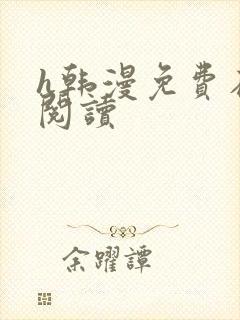 h韩漫免费在
閱讀
余躍譚